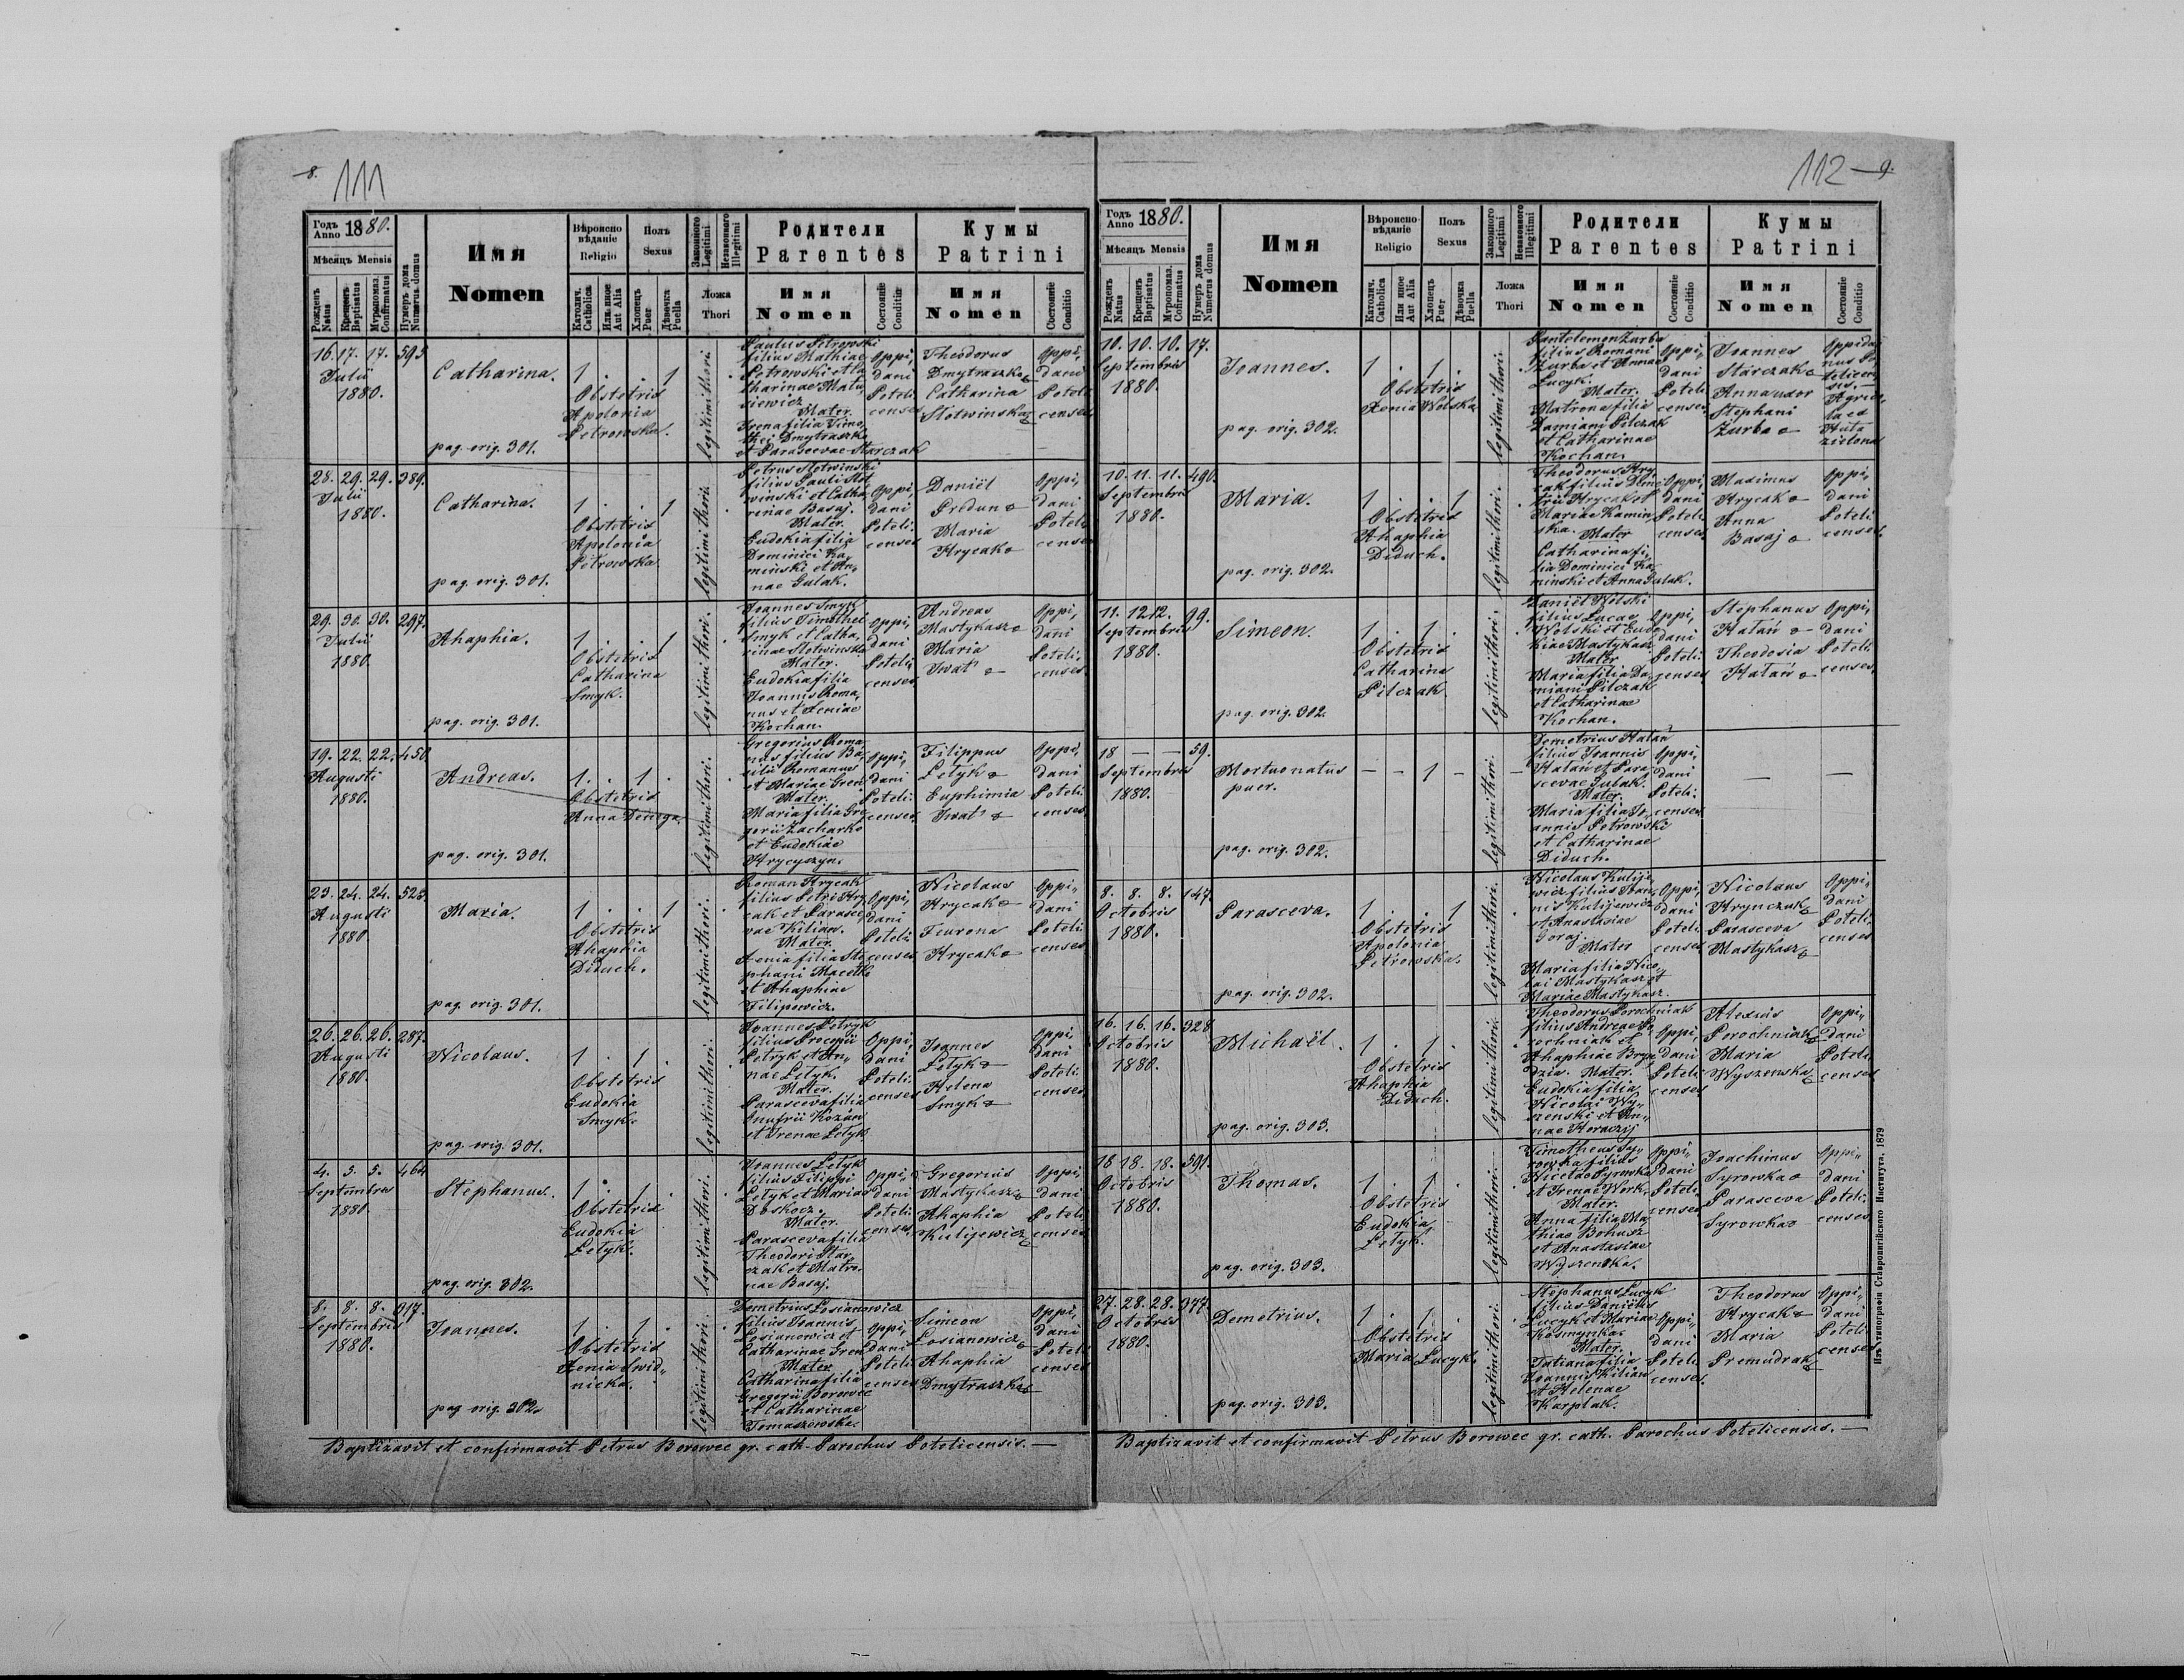 8.
111
Годъ
Anno 1880.
Мѣсяцъ Mensis
Рожденъ
Natus
Крещенъ
Baptisatus
Мѵропомаз.
Confirmatus
Нумеръ дома
Numerus domus
Имя
Nomen
Вѣроиспо-
вѣданіе
Religio
Католич.
Catholica
Или иное
Aut Alia
Полъ
Sexus
Хлопецъ
Puer
Дѣвочка
Puella
Законного
Legitimi
Незаконного
Illegitimi
Ложа
Thori
Родители
Parentes
Имя
Nomen
Состояніе
Conditio
Кумы
Patrini
Имя
Nomen
Состояніе
Conditio
16. 17. 17.
Julii
1880.
Catharina.
1 . . 1
Obstetrix
Apolonia
Petrowska.
pag. orig. 301.
legitimi thori.
Paulus Petrowski
filius Mathiae
Petrowski et Ca
tharinae Matu,
siewicz
Mater.
Irena filia Timo,
thei Dmytraszko
et Parascevae Starczak
Oppi,
dani
Poteli,
censes
Theodorus
Dmytraszko
Catharina
Slotwinska
Oppi,
dani
Poteli
censes
28. 29. 29. 389.
Julii
1880.
Catharina.
1 . . 1
Obstetrix
Apolonia
Petrowska
pag. orig. 301.
legitimi thori.
Petrus Slotwinski
filius Pauli Slot
winski et Catha,
rinae Basaj.
Mater.
Eudokia filia
Dominici Ka,
minski et An,
nae Gulak.
Oppi,
dani
Poteli.
censes
Daniël
Maria
Hrycak
Oppi,
dani
Poteli
censes
29. 30. 30. 297.
Julii
1880.
Ahaphia.
1 . . 1
Obstetrix
Catharina
Smyk.
pag. orig. 301.
legitimi thori.
Joannes Smyk
filius Timothei
Smyk et Catha,
rinae Slotwinska
Mater.
Eudokia filia
Joannis Roma,
nus et Xeniae
Kochan.
Oppi,
dani
Poteli
censes
Andreas
Mastykasz
Maria
Iwat
Oppi,
dani
Poteli,
censes
19. 22. 22. 450.
Augusti
1880.
Andreas.
1 . 1 .
Obstetrix
pag. orig. 301.
legitimi thori.
Gregorius Roma,
nus filius Ba,
silii Romanus
et Mariae Gren.
Mater.
Maria filia Gre
gorii Zacharko
et Eudokiae
Hrycyszyn.
Oppi,
dani
Poteli.
censes
Filippus
Letyk
Euphimia
Iwat
Oppi,
dani
Poteli.
censes
23. 24. 24. 523.
Augusti
1880.
Maria.
1 . . 1
Obstetrix
Ahaphia
Diduch.
pag. orig. 301.
legitimi thori.
Roman Hrycak
filius Petri Hry
cak et Parasce,
vae Kilian.
Mater.
Xenia filia Ste
phani
et Ahaphiae
Filipowicz.
Oppi,
dani
Poteli
censes
Nicolaus
Hrycak
Hrycak
Oppi,,
dani
Poteli
censes
26. 26. 26. 287.
Augusti
1880.
Nicolaus.
1 . 1 .
Obstetrix
Eudokia
Smyk.
pag. orig. 301.
legitimi thori.
Joannes Petryk
filius Procopii
Petryk et An,,
nae Letyk.
Mater.
Parasceva filia
Onufrii Kozan
et Irenae Letyk
Oppi,
dani
Poteli.
censes
Joannes
Letyk
Helena
Smyk
Oppi,
dani
Poteli
censes
4. 5. 5. 464
Septembris
1880.
Stephanus.
1 . 1 .
Obstetrix
Eudokia
Letyk.
pag. orig. 302.
legitimi thori.
Joannes Letyk
filius Filippi
Letyk et Mariae
Doskocz.
Mater.
Parasceva filia
Theodori Star,
czak et Matro,
nae Basaj.
Oppi,,
dani
Poteli
censes
Gregorius
Mastykasz
Ahaphia
Kulijewicz
Oppi,
dani
Poteli
censes
8. 8. 8. 917.
Septembris
1880.
Joannes.
1 . 1 .
Obstetrix
Xenia Swid,,
nicka.
pag orig. 302.
legitimi thori.
Demetrius Losianowicz
filius Joannis
Losianowicz et
Catharinae Gren
Mater
Catharina filia
Gregorii Borowec
et Catharinae
Tomaszewska.
Oppi,
dani
Poteli
censes
Simeon
Losianowicz
Ahaphia
Dmytraszko
Oppi,
dani
Poteli
censes
Baptizavit et confirmavit Petrus Borowec gr. cath. Parochus Potelicensis. —
112 — 9.
Годъ
Anno 1880.
Мѣсяцъ Mensis
Рожденъ
Natus
Крещенъ
Baptisatus
Мѵропомаз.
Confirmatus
Нумеръ дома
Numerus domus
Имя
Nomen
Вѣроиспо-
вѣданіе
Religio
Католич.
Catholica
Или иное
Aut Alia
Полъ
Sexus
Хлопецъ
Puer
Дѣвочка
Puella
Законного
Legitimi
Незаконного
Illegitimi
Ложа
Thori
Родители
Parentes
Имя
Nomen
Состояніе
Conditio
Кумы
Patrini
Имя
Nomen
Состояніе
Conditio
10. 10. 10. 17.
Septembris
1880.
Joannes.
1 . 1 .
Obstetrix
Xenia Wolska
pag. orig. 302.
legitimi thori.
Pantelemon Zurba
filius Romani
Zurba et Annae
Lucyk.
Mater.
Matrona filia
Damiani Pilczak
et Catharinae
Kochan.
Oppi,,
dani
Poteli
censes
Joannes
Starczak
Anna uxor
Stephani
Zurba
Oppida
nus Po
telicen
sis. —
Agrico
la ex
Huta
zielona
10. 11. 11. 490.
Septembris
1880.
Maria.
1 . . 1
Obstetrix
Ahaphia
Diduch.
pag. orig. 302.
legitimi thori.
Theodorus Hry,
cak filius Deme
trii Hrycak et
Mariae Kamin,
ska. Mater
Catharina fi,
lia Dominici Ka,
minski et Anna Gulak.
Oppi,
dani
Poteli
censes
Maximus
Hrycak
Anna
Basaj
Oppi,
dani
Poteli
censes
11. 12. 12. 99.
Septembris
1880.
Simeon.
1 . 1 .
Obstetrix
Catharina
Pilczak.
pag. orig. 302.
legitimi thori.
Daniël Wolski
filius Lucae
Wolski et Eudo
kiae Mastykasz
Mater
Maria filia Da,
miani Pilczak
et Catharinae
Kochan.
Oppi,
dani
Poteli.
censes
Stephanus
Hatan
Theodosia
Hatan
Oppi,
dani
Poteli
censes
18 — — 59.
Septembris
1880.
Mortuonatus
puer.
— — 1 — —
pag. orig. 302.
legitimi thori.
Demetrius Hatan
filius Joannis
Hatan et Para
scevae Gulak.
Mater.
Maria filia Jo,
annis Petrowski
et Catharinae
Diduch.
Oppi,
dani
Poteli.
censes
— —
8. 8. 8. 147.
Octobris
1880.
Parasceva.
1 . . 1
Obstetrix
Apolonia
Petrowska.
pag. orig. 302.
legitimi thori.
Nicolaus Kulije,
wicz filius Joan,
nis Kulijewicz
et Anastasiae
Goraj.
Mater
Maria filia Nico,
lai Mastykasz et
Mariae Mastykasz.
Oppi,
dani
Poteli
censes
Nicolaus
Hrynczuk
Parasceva
Mastykasz
Oppi,,
dani
Poteli
censes
16. 16. 16. 328
Octobris
1880.
Michaël.
1 . 1 .
Obstetrix
Ahaphia
Diduch.
pag. orig. 303.
legitimi thori.
Theodorus Porochniak
filius Andreae Po
rochniak et
Ahaphiae Bryn
dzia. Mater.
Eudokia filia
Nicolai Wy,
szenski et An,,
nae Horaczij
Oppi,
dani
Poteli
censes
Alexius
Porochniak
Maria
Wyszenska
Oppi,,
dani
Poteli
censes
18 18. 18. 591.
Octobris
1880.
Thomas.
1 . 1 .
Obstetrix
Eudokia
Letyk.
pag. orig. 303.
legitimi thori.
Timotheus Sy,
rowka filius
Nicetae Syrowka
et Irenae Work.
Mater.
Anna filia Ma
thiae Bohusz
et Anastasiae
Wyszenska.
Oppi,
dani
Poteli.
censes
Joachimus
Syrowka
Parasceva
Syrowka
Oppi,,
dani
Poteli
censes
27. 28. 28. 347.
Octobris
1880.
Demetrius.
1 . 1 .
Obstetrix
Maria Lucyk.
pag. orig. 303.
legitimi thori.
Stephanus Lucyk
filius Daniëlis
Lucyk et Mariae
Kosmynka.
Mater.
Tatiana filia
Joannis Kilian
et Helenae
Karplak.
Oppi,,
dani
Poteli
censes.
Theodorus
Hrycak
Maria
Premudrak
Oppi,,
dani
Poteli
censes
Baptizavit et confirmavit Petrus Borowec gr. cath. Parochus Potelicensis. —
Изъ типографіи Ставропигійского Института. 1879